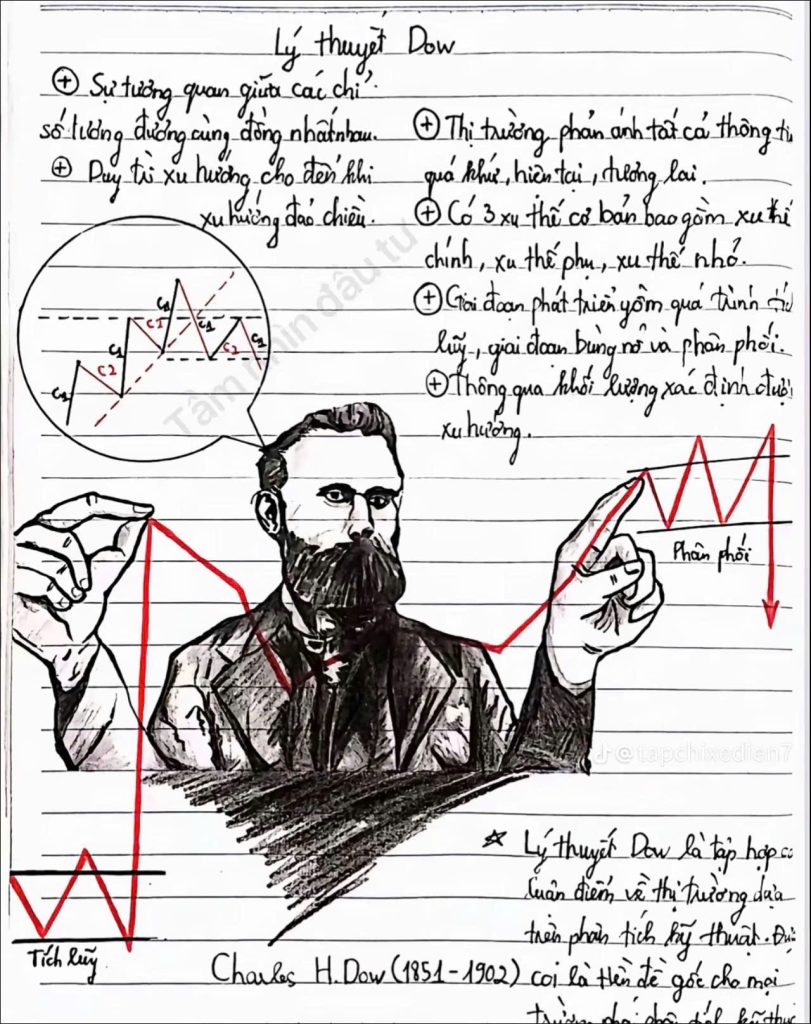 Lý thuyết Dow
+ Sự tương quan giữa các chỉ
số tương đương cùng đồng nhất nhau.
+ Duy trì xu hướng cho đến khi
xu hướng đảo chiều.
+ Thị trường phản ánh tất cả thông ti
quá khứ, hiện tại, tương lai.
+ Có 3 xu thế cơ bản bao gồm xu thế
chính, xu thế phụ, xu thế nhỏ.
+ Giai đoạn phát triển gồm quá trình tíc
lũy, giai đoạn bùng nổ và phân phối.
+ Thông qua khối lượng xác định được
xu hướng.
C1 C2 C1 C1 C1 C1 C2 C1
Tầm nhìn đầu tư
Phân phối
@tapchixedien7
☆ Lý thuyết Dow là tập hợp
luận điểm về thị trường dựa
trên phân tích kỹ thuật.
Tích lũy
Charles H. Dow (1851-1902)
coi là tiền đề gốc cho mọi